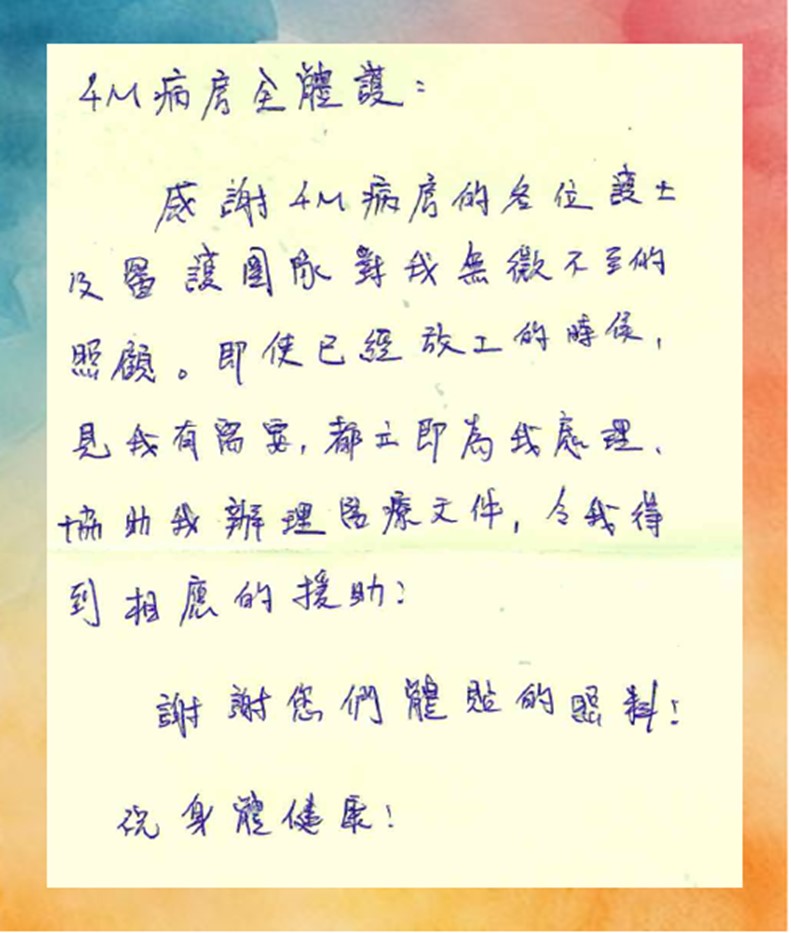 4M病房全體護：
感謝4M病房的各位護士
及醫護團隊對我無微不至的
照顧。即使已經放工的時候，
見我有需要，都立即為我處理、
協助我辦理醫療文件，令我得
到相應的援助！
謝謝您們體貼的照料！
祝身體健康！